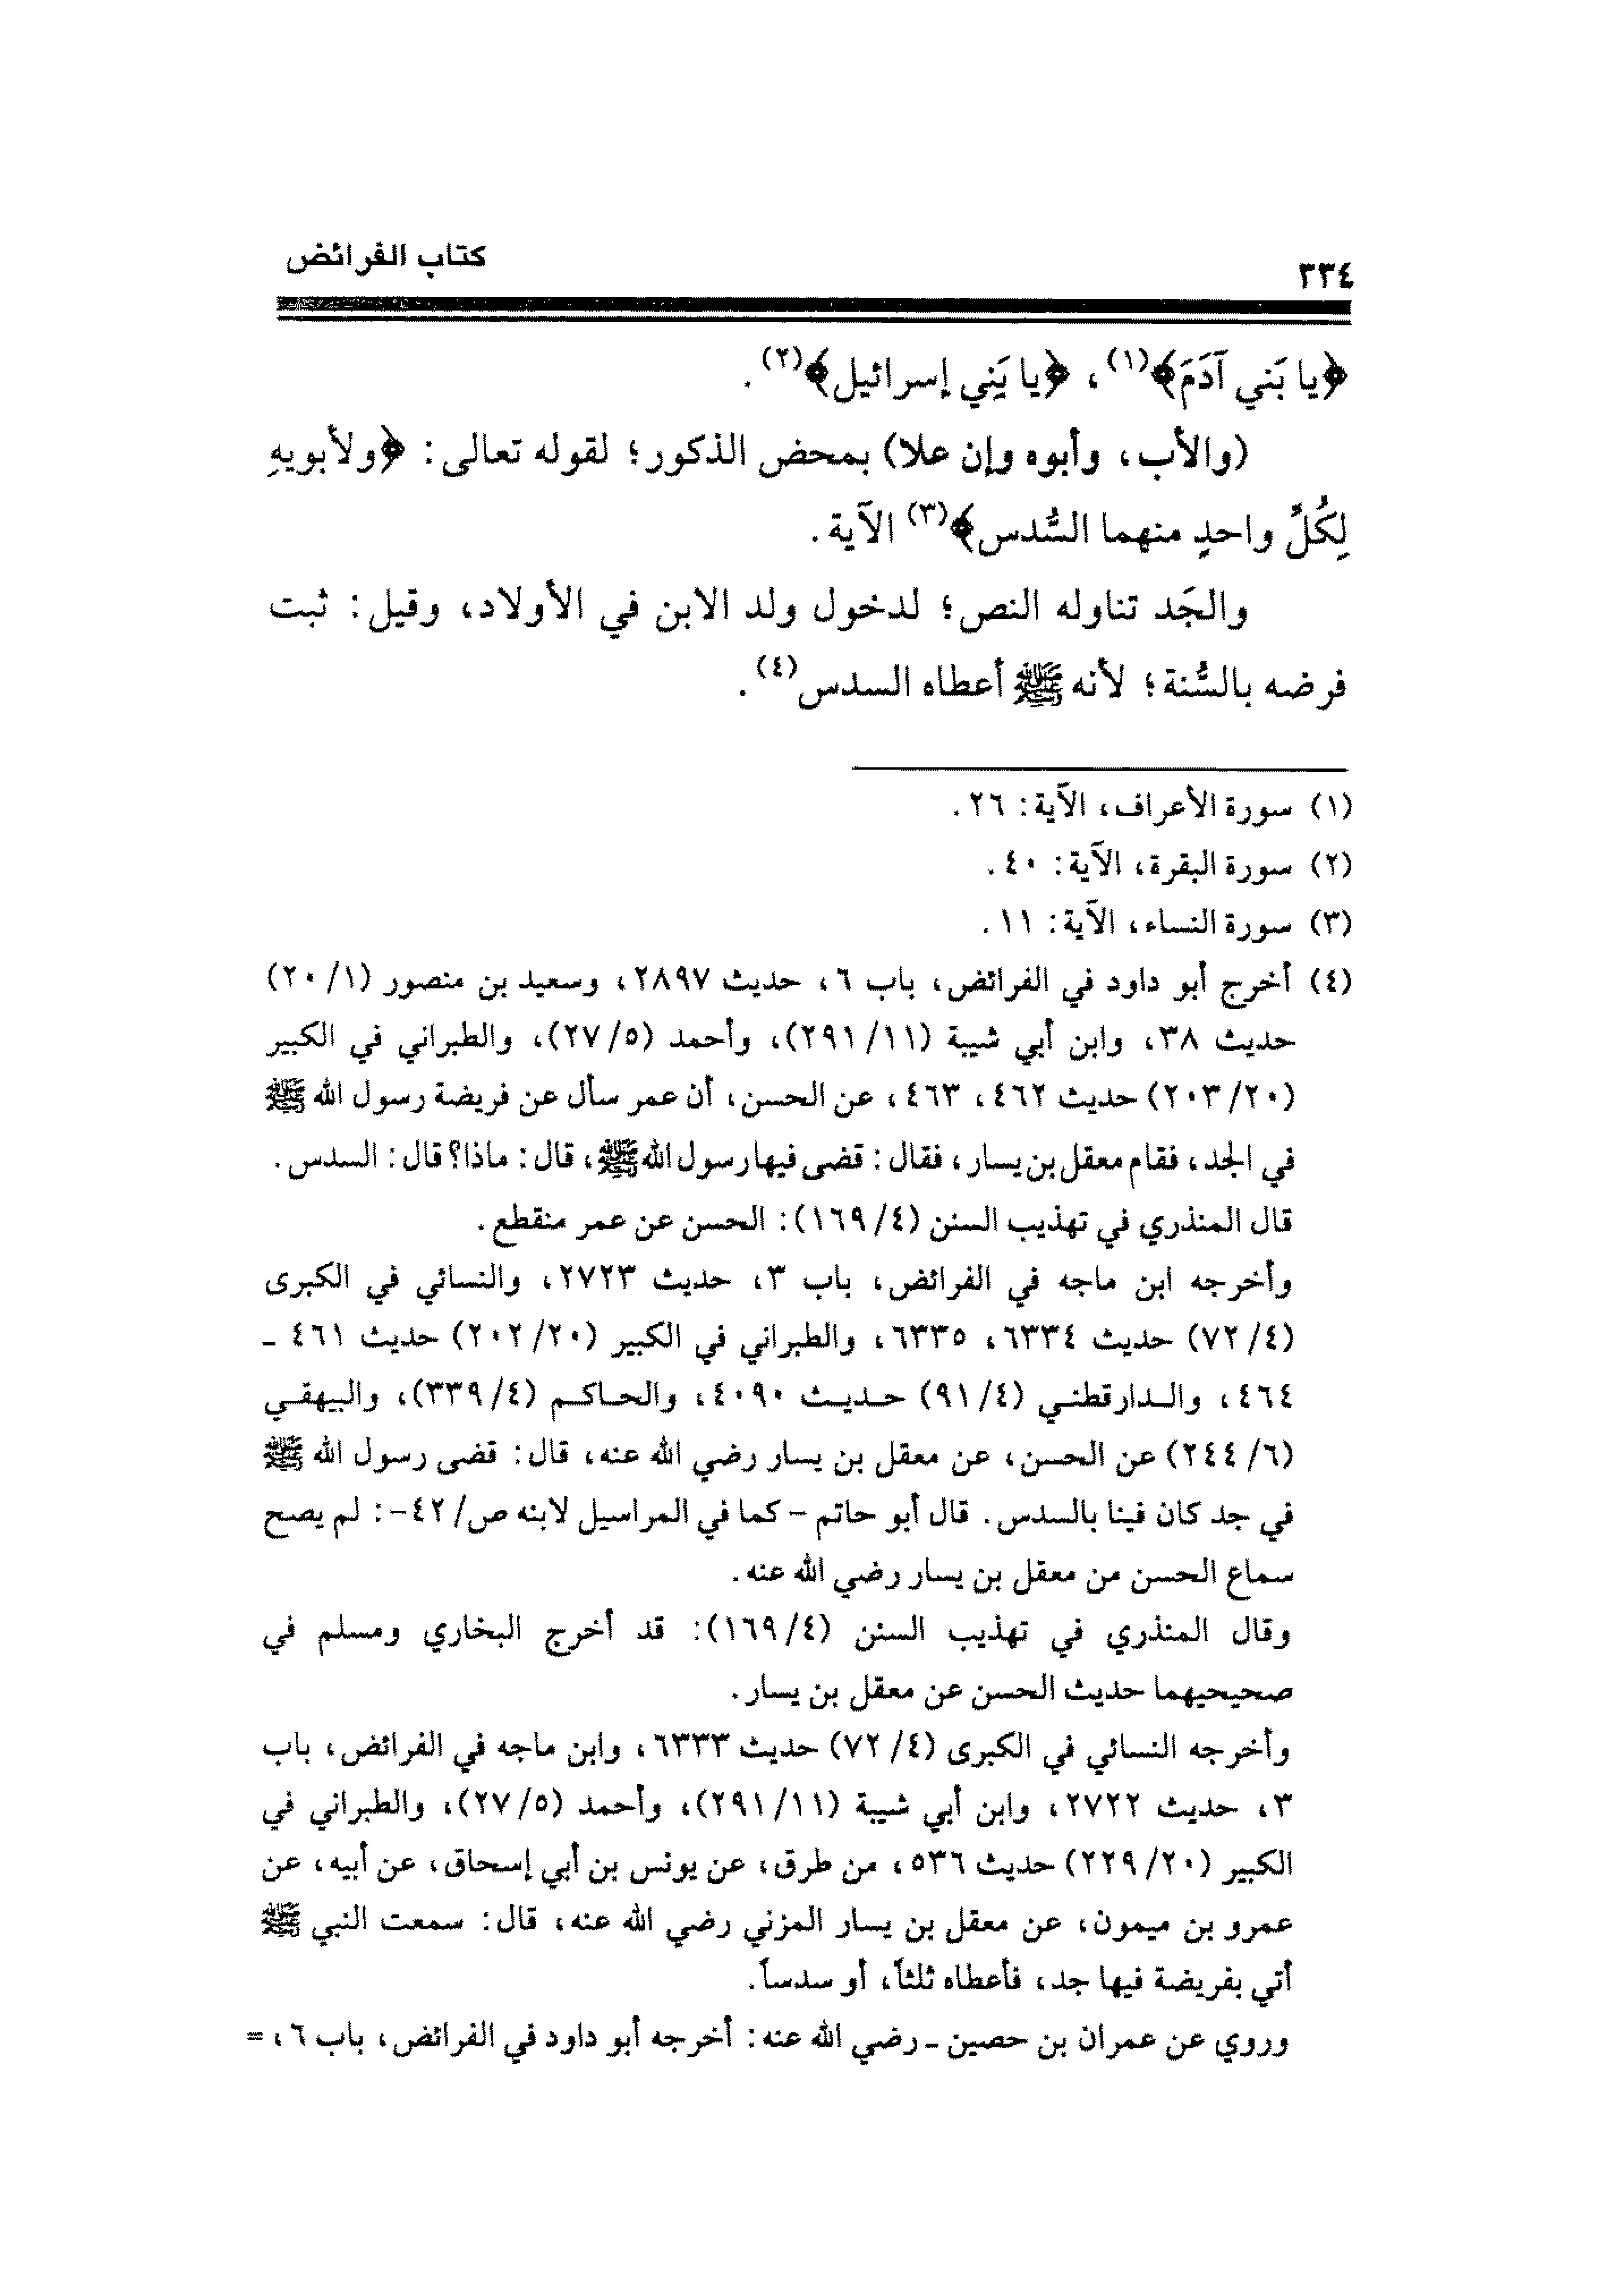 ٣٣٤
كتاب الفرائض
﴿يا بَني آدَمَ﴾(١)، ﴿يا بَنِي إسرائيل﴾(٢).
(والأب، وأبوه وإن علا) بمحض الذكور؛ لقوله تعالى: ﴿ولأبويهِ
لِكُلِّ واحدٍ منهما السُّدس﴾(٣) الآية.
والجَد تناوله النص؛ لدخول ولد الابن في الأولاد، وقيل: ثبت
فرضه بالسُّنة؛ لأنه ﷺ أعطاه السدس(٤).
(١) سورة الأعراف، الآية: ٢٦.
(٢) سورة البقرة، الآية: ٤٠.
(٣) سورة النساء، الآية: ١١.
(٤) أخرج أبو داود في الفرائض، باب ٦، حديث ٢٨٩٧، وسعيد بن منصور (١/ ٢٠)
حديث ٣٨، وابن أبي شيبة (١١/ ٢٩١)، وأحمد (٥/ ٢٧)، والطبراني في الكبير
(٢٠/ ٢٠٣) حديث ٤٦٢، ٤٦٣، عن الحسن، أن عمر سأل عن فريضة رسول الله ﷺ
في الجد، فقام معقل بن يسار، فقال: قضى فيها رسول الله ﷺ، قال: ماذا؟ قال: السدس.
قال المنذري في تهذيب السنن (٤/ ١٦٩): الحسن عن عمر منقطع.
وأخرجه ابن ماجه في الفرائض، باب ٣، حديث ٢٧٢٣، والنسائي في الكبرى
(٤/ ٧٢) حديث ٦٣٣٤، ٦٣٣٥، والطبراني في الكبير (٢٠/ ٢٠٢) حديث ٤٦١ ـ
٤٦٤، والـدارقطنـي (٤/ ٩١) حـديـث ٤٠٩٠، والحـاكـم (٤/ ٣٣٩)، والبيهقـي
(٦/ ٢٤٤) عن الحسن، عن معقل بن يسار رضي الله عنه، قال: قضى رسول الله ﷺ
في جد كان فينا بالسدس. قال أبو حاتم – كما في المراسيل لابنه ص/ ٤٢–: لم يصح
سماع الحسن من معقل بن يسار رضي الله عنه.
وقال المنذري في تهذيب السنن (٤/ ١٦٩): قد أخرج البخاري ومسلم في
صحيحيهما حديث الحسن عن معقل بن يسار.
وأخرجه النسائي في الكبرى (٤/ ٧٢) حديث ٦٣٣٣، وابن ماجه في الفرائض، باب
٣، حديث ٢٧٢٢، وابن أبي شيبة (١١/ ٢٩١)، وأحمد (٥/ ٢٧)، والطبراني في
الكبير (٢٠/ ٢٢٩) حديث ٥٣٦، من طرق، عن يونس بن أبي إسحاق، عن أبيه، عن
عمرو بن ميمون، عن معقل بن يسار المزني رضي الله عنه، قال: سمعت النبي ﷺ
أتي بفريضة فيها جد، فأعطاه ثلثاً، أو سدساً.
وروي عن عمران بن حصين ـ رضي الله عنه: أخرجه أبو داود في الفرائض، باب ٦، =